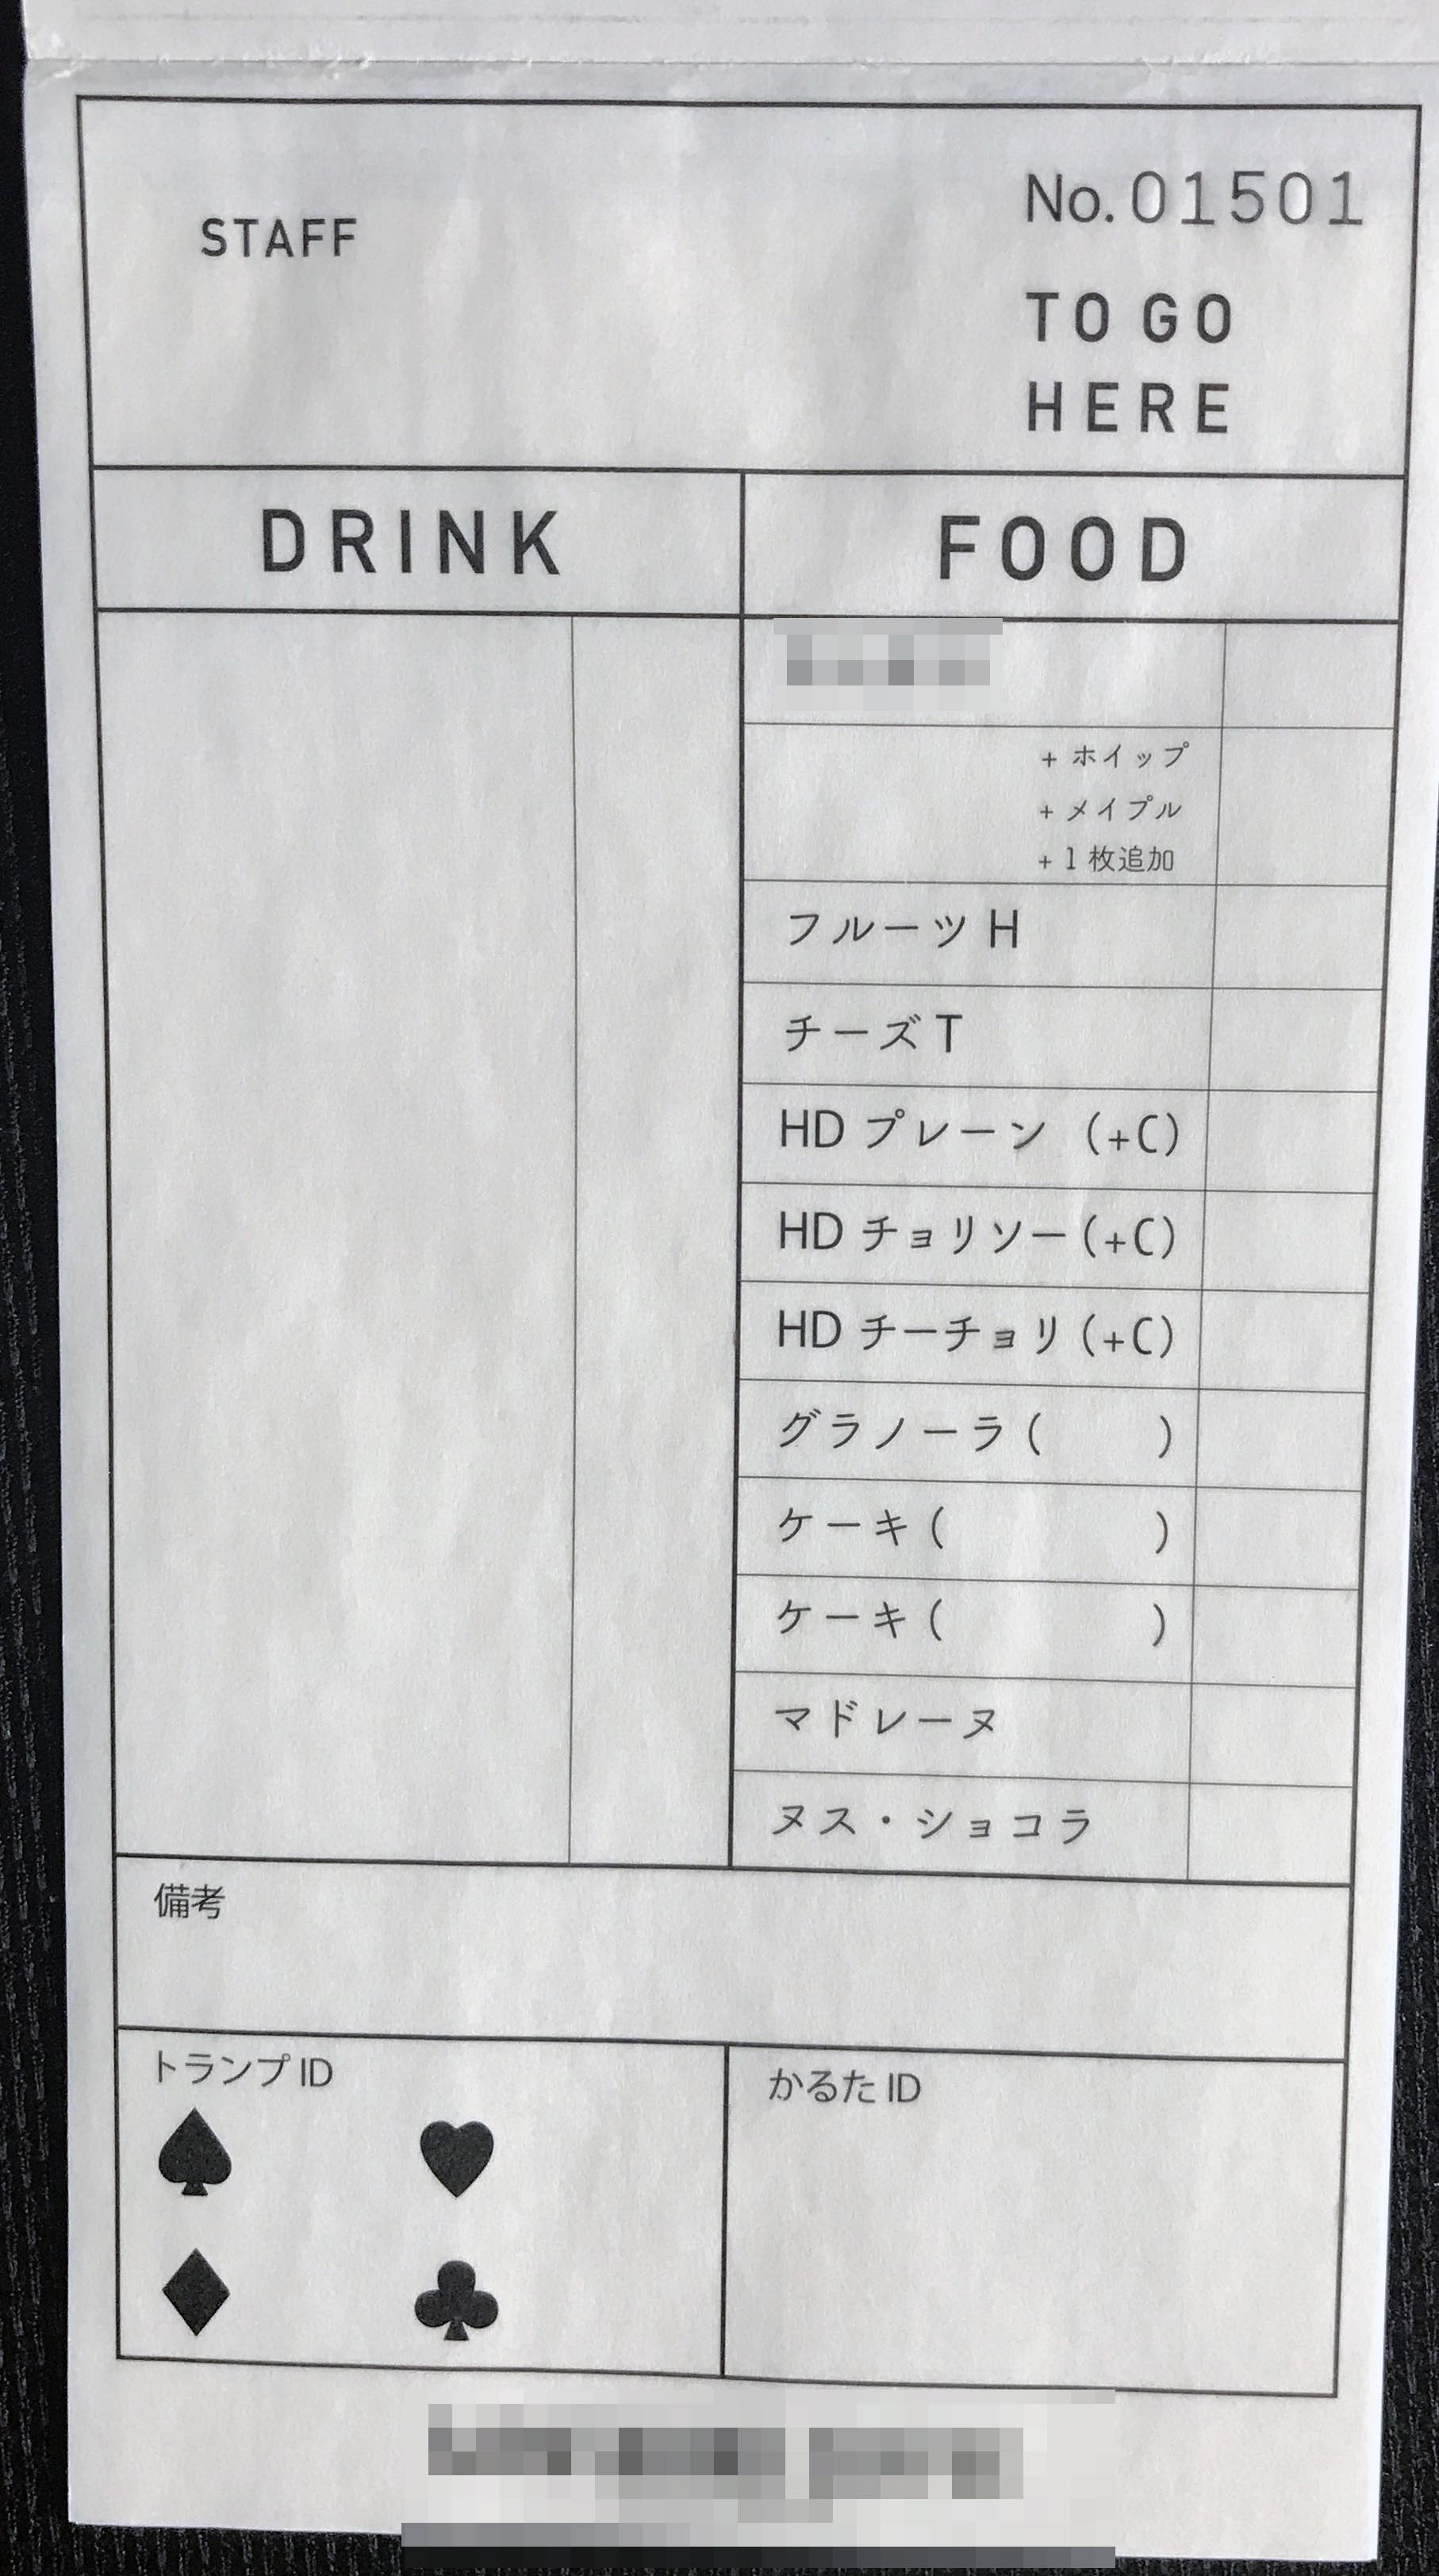 STAFF
No.01501
TO GO
HERE
DRINK
FOOD
+ ホイップ
+ メイプル
+ 1 枚追加
フルーツ H
チーズ T
HD プレーン (+C)
HD チョリソー (+C)
HD チーチョリ (+C)
グラノーラ ( )
ケーキ ( )
ケーキ ( )
マドレーヌ
ヌス・ショコラ
備考
トランプ ID
かるた ID
♠ ♥
♦ ♣